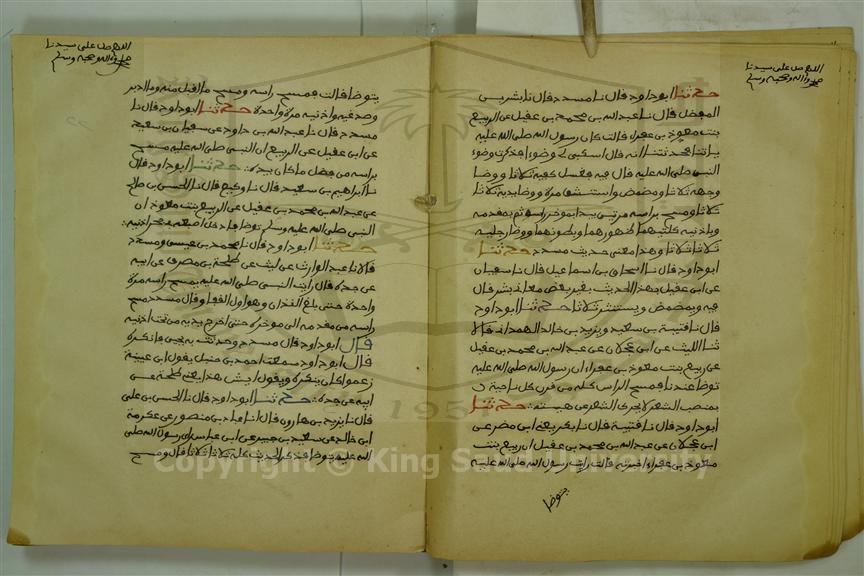 اللهم صل على سيدنا
محمد واله وصحبه وسلم
حدثنا ابو داود قال نا مسدد قال نا بشر بن
المفضل قال نا عبد الله بن محمد بن عقيل عن الربيع
بنت معوذ بن عفراء قالت كان رسول الله صلى الله عليه
ياتينا فحدثتنا انه قال اسكبي لي وضوءا فذكرت وضوء
النبي صلى الله عليه قال فيه فغسل كفيه ثلاثا ووضا
وجهه ثلاثا ومضمض واستنشق مرة ووضا يديه ثلاثا
ثلاثا ومسح براسه مرتين يبدا بموخر راسه ثم بمقدمه
وباذنيه كلتيهما ظهورهما وبطونهما ووضا رجليه
ثلاثا ثلاثا وهذا معنى حديث مسدد حدثنا
ابو داود قال نا اسحاق بن اسماعيل قال نا سفيان
عن ابن عقيل بهذا الحديث يغير بعض معاني بشر قال
فيه ويمضمض ويستنثر ثلاثا حدثنا ابو داود
قال نا قتيبة بن سعيد ويزيد بن خالد الهمداني قالا
ثنا الليث عن ابن عجلان عن عبد الله بن محمد بن عقيل
عن ربيع بنت معوذ بن عفراء ان رسول الله صلى الله عليه
توضا عندها فمسح الراس كله من قرن كل ناحية
بمنصب الشعر لا يحرك الشعر عن هيئته حدثنا
ابو داود قال نا قتيبة قال نا بكر يعني ابن مضر عن
ابن عجلان عن عبد الله بن محمد بن عقيل ان ربيع بنت
معوذ بن عفراء اخبرته قالت رايت رسول الله صلى الله عليه
يتوضا
اللهم صل على سيدنا
محمد واله وصحبه وسلم
يتوضا قالت فمسح راسه ومسح ما اقبل منه وما ادبر
وصدغيه واذنيه مرة واحدة حدثنا ابو داود قال نا
مسدد قال نا عبد الله بن داود عن سفيان بن سعيد
عن ابن عقيل عن الربيع ان النبي صلى الله عليه مسح
براسه من فضل ما كان بيده حدثنا ابو داود قال
نا ابراهيم بن سعيد قال نا وكيع قال نا الحسن بن صالح
عن عبد الله بن محمد بن عقيل عن الربيع بنت معوذ ان
النبي صلى الله عليه وسلم توضا فادخل اصبعيه في جحر اذنيه
حدثنا ابو داود قال نا محمد بن عيسى ومسدد
قالا نا عبد الوارث عن ليث عن طلحة بن مصرف عن ابيه
عن جده قال رايت النبي صلى الله عليه يمسح راسه مرة
واحدة حتى بلغ القذال وهو اول القفا وقال مسدد مسح
راسه من مقدمه الى موخره حتى اخرج يديه من تحت اذنيه
قال ابو داود قال مسدد وحدثت به يحيى فانكره
قال ابو داود سمعت احمد بن حنبل يقول ابن عيينة
زعموا كان ينكره ويقول ايش هذا يعني طلحة عن
ابيه عن جده حدثنا ابو داود قال نا الحسن بن علي
قال نا يزيد بن هارون قال انا عباد بن منصور عن عكرمة
ابن خالد عن سعيد بن جبير عن ابن عباس ان رسول الله صلى
الله عليه توضا فذكر الحديث كله ثلاثا ثلاثا قال ومسح
Copyright © King Saud University
1957